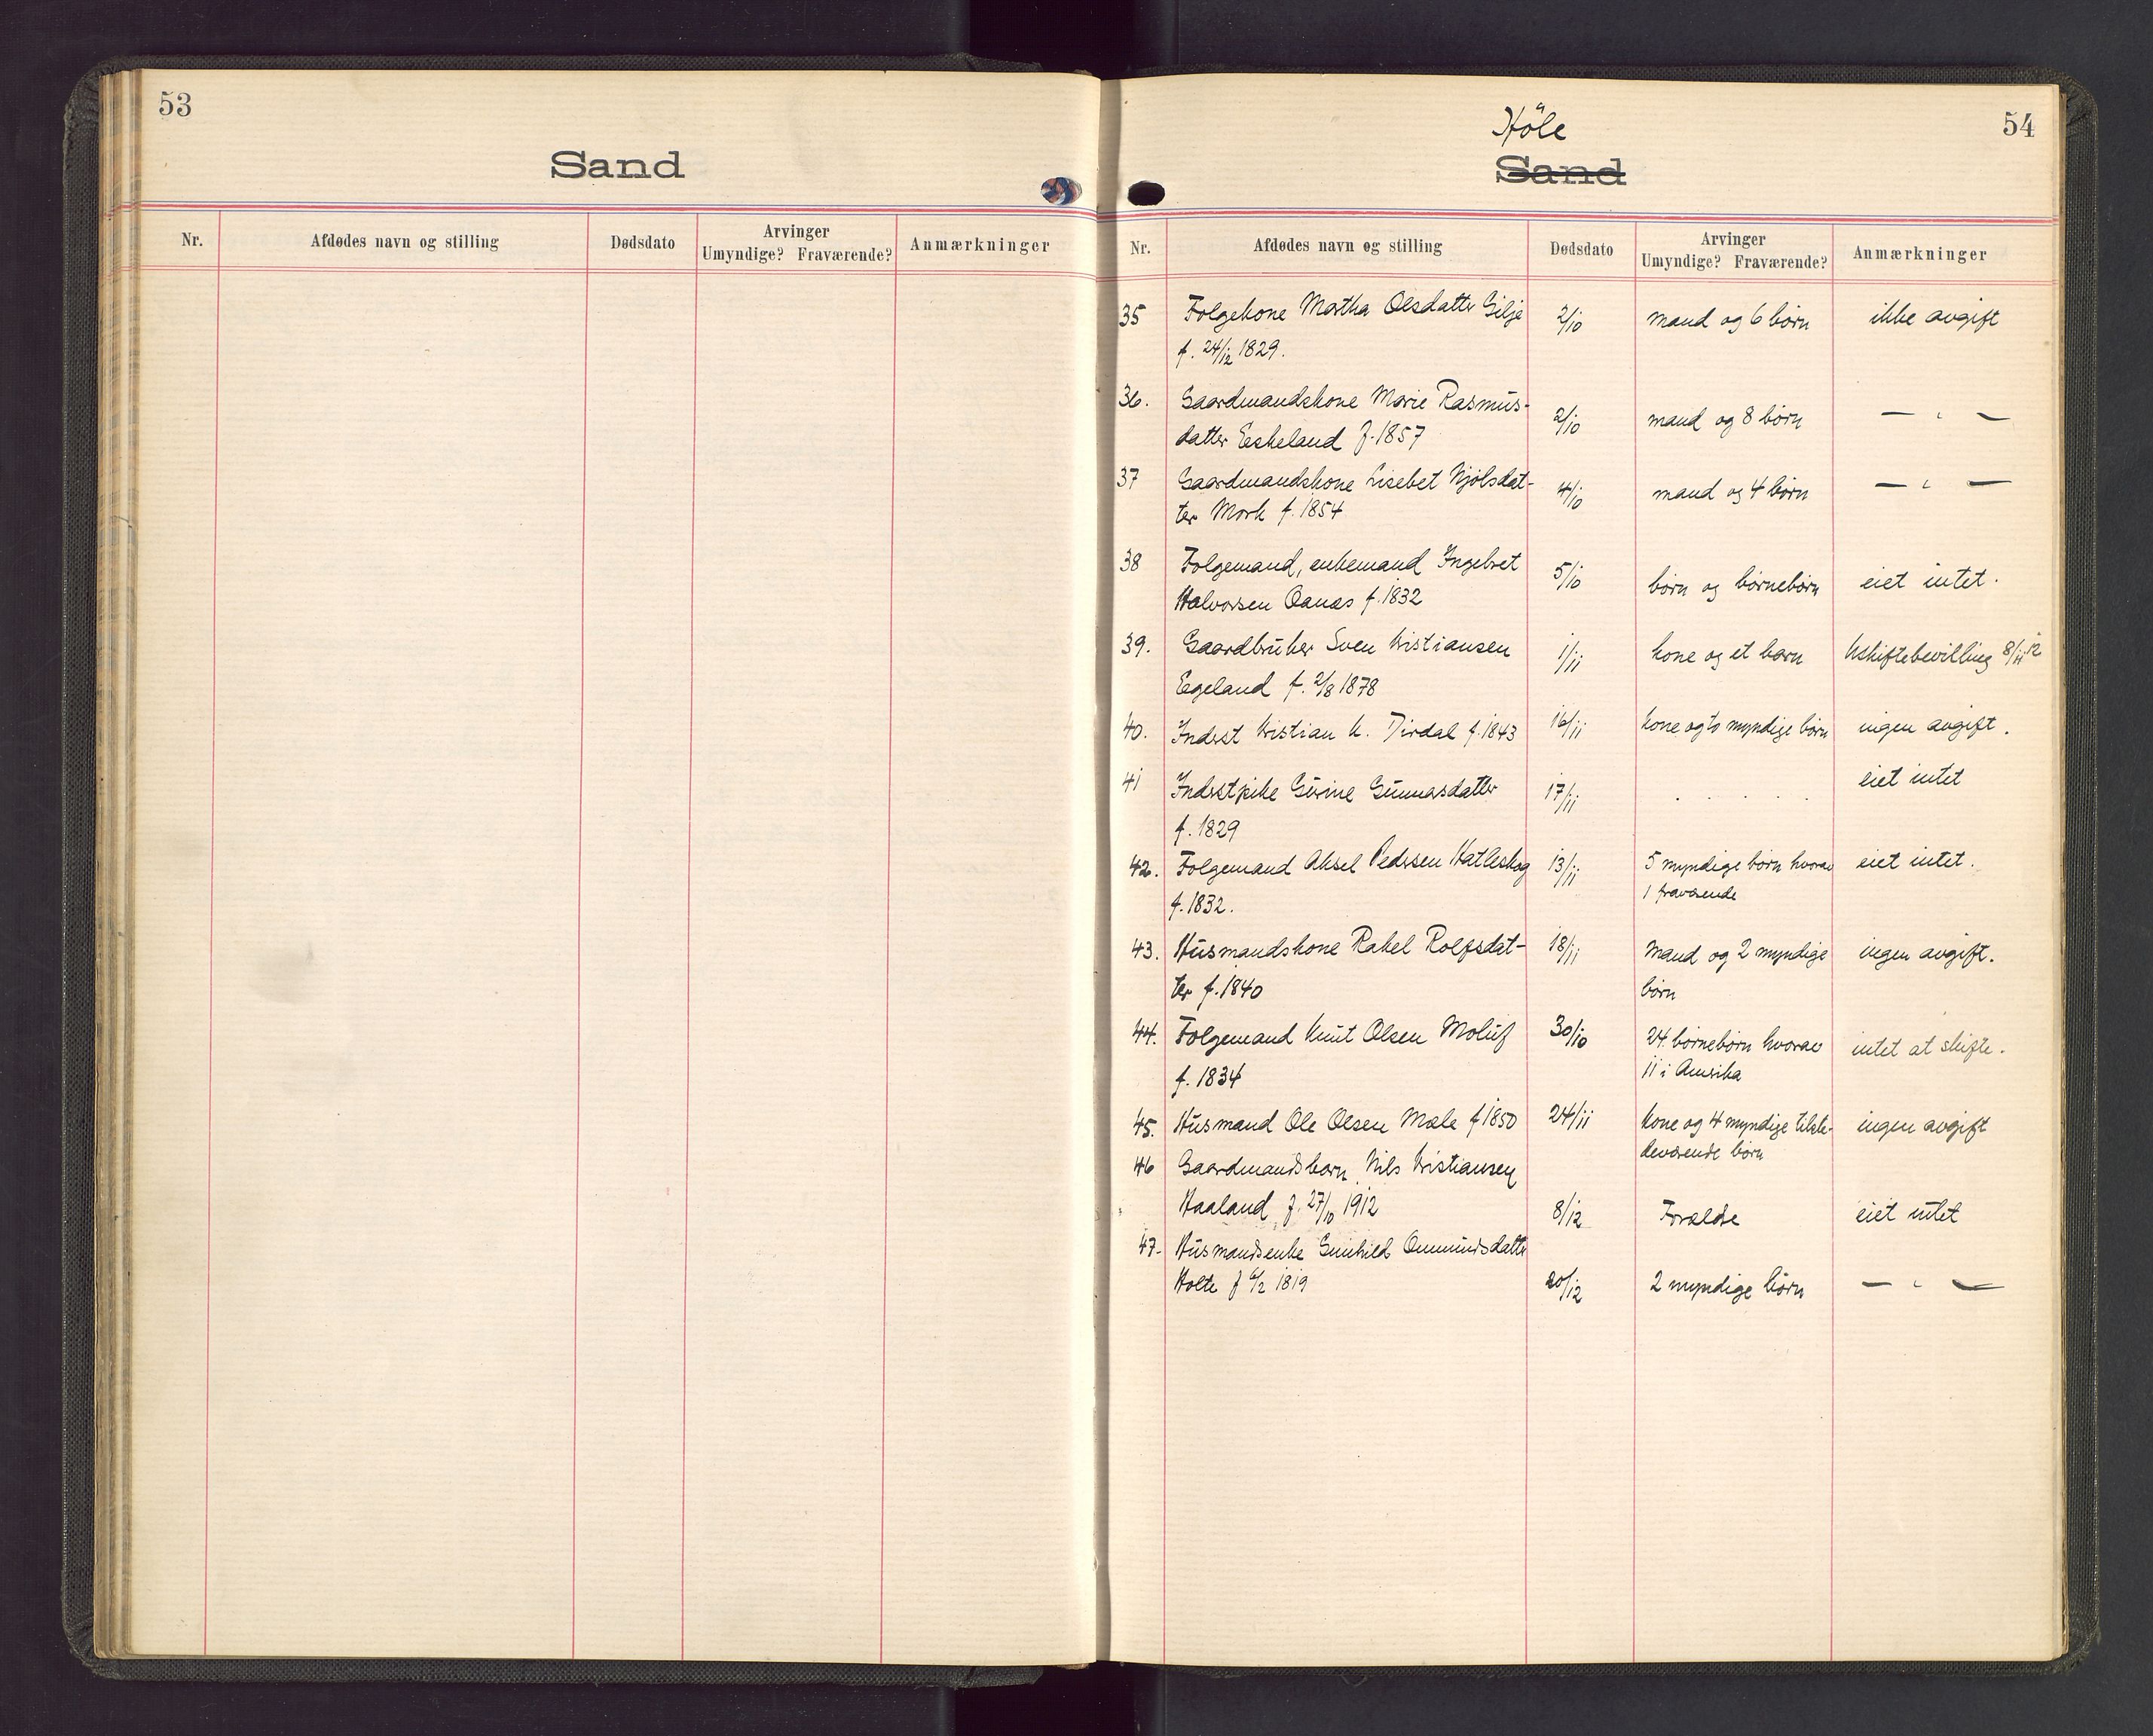 53
Sand
Nr. Afdødes navn og stilling Dødsdato Arvinger Umyndige? Fraværende? Anmærkninger
54
Höle
Sand
Nr. Afdødes navn og stilling Dødsdato Arvinger Umyndige? Fraværende? Anmærkninger
35 Folgekone Martha Olsdatter Gilje 2/10 mand og 6 børn ikke avgift
f. 24/12 1829.
36. Gaardmandskone Marie Rasmus- 2/10 mand og 8 børn — " —
datter Eskeland f. 1857
37 Gaardmandskone Lisebet Njølsdat- 4/10 mand og 4 børn — " —
ter Mork f. 1854
38 Folgemand, enkemand Ingebret 5/10 børn og børnebørn eiet intet.
Halvorsen Oanæs f. 1832
39. Gaardbruker Sven Kristiansen 1/11 kone og et barn Uskiftebevilling 8/11 12
Eegeland f. 2/8 1878
40. Inderst Kristian K. Dirdal f. 1843 16/11 kone og to myndige børn ingen avgift.
41 Inderstpike Gurine Gunnarsdatter 17/11 . . . . eiet intet
f. 1829
42. Folgemand Aksel Pedersen Hatleskog 13/11 5 myndige børn hvorav eiet intet.
f. 1832. 1 fraværende
43. Husmandskone Rakel Rolfsdat- 18/11 Mand og 2 myndige ingen avgift.
ter f. 1840 børn
44. Folgemand Knut Olsen Moluf 30/10 24 børnebørn hvorav intet at skifte.
f. 1834 11 i Amerika
45. Husmand Ole Olsen Mæle f 1850 24/11 kone og 4 myndige tilste- ingen avgift
deværende børn
46 Gaardmandsbarn Nils Kristiansen
Haaland f. 27/10 1912 8/12 Forældre eiet intet
47. Husmandsenke Gunhild Ommundsdatter
Holte f 6/2 1819 20/12 2 myndige børn — " —